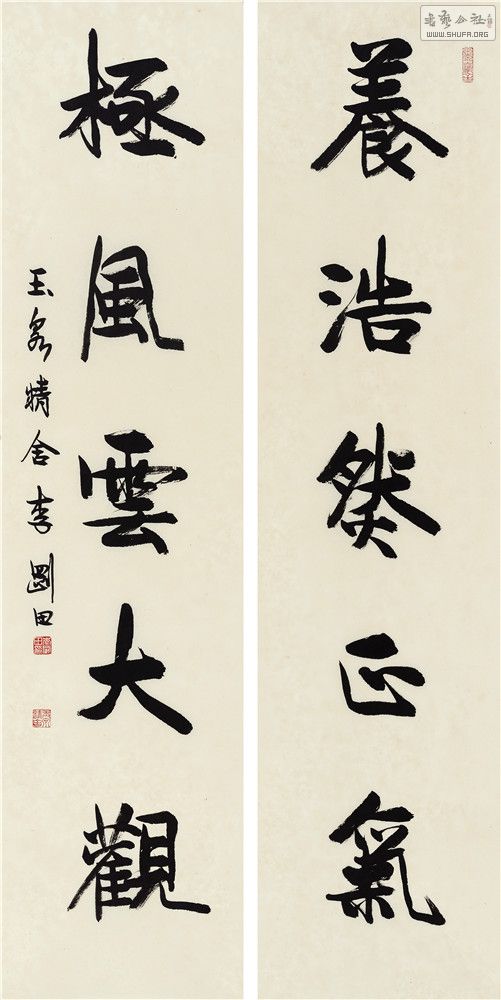 養浩然正氣
極風雲大觀
玉泉精舍李剛田
書藝公社
WWW.SHUFA.ORG